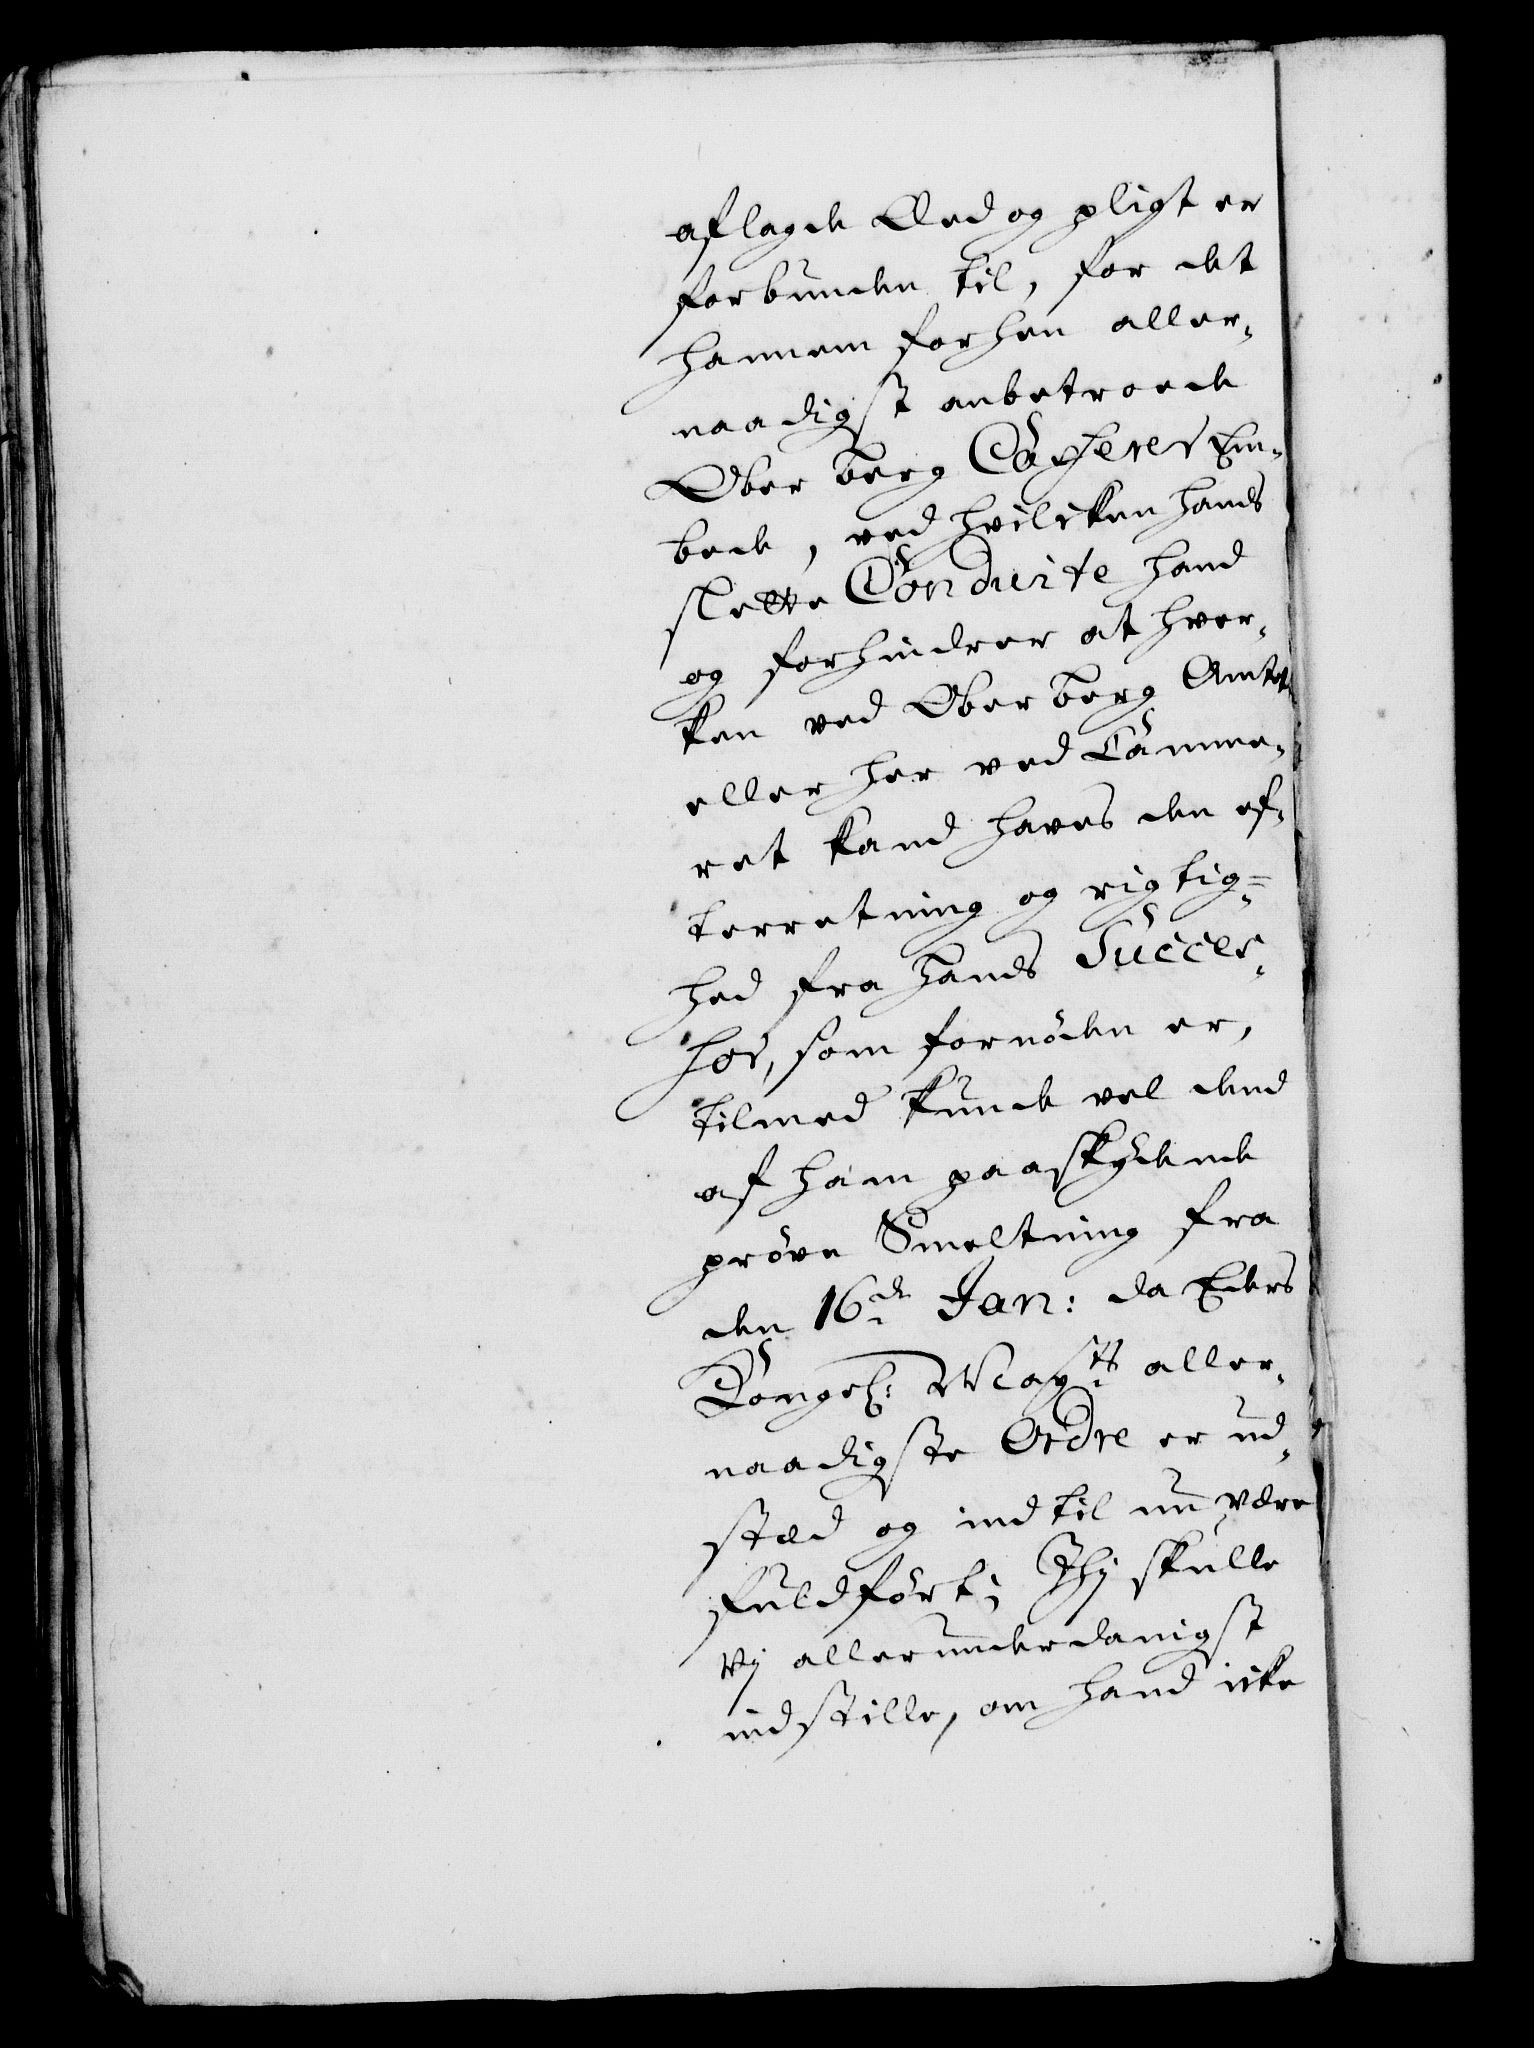 aflagde Eed og pligt er
forbunden til, for det
hannem forhen aller-
naadigst anbetroede
Ober berg Casserer Em-
bede, ved hvilcken hands
slette Conduite hand
og forhindrer at hver-
ken ved Ober berg Amtet
eller her ved Camme-
ret kand haves den ef-
terretning og rigtig=
hed fra hands Succes-
hor, som fornöden er,
tilmed kunde vel dend
af ham paaskydende
pröve Smeltning fra
den 16de Jan: da Eders
Kongel: Mayts aller-
naadigste Ordre er ud-
stæd og indtil nu være
fuldfört; Thj skulle
Vj allerunderdanigst
indstille, om hand icke